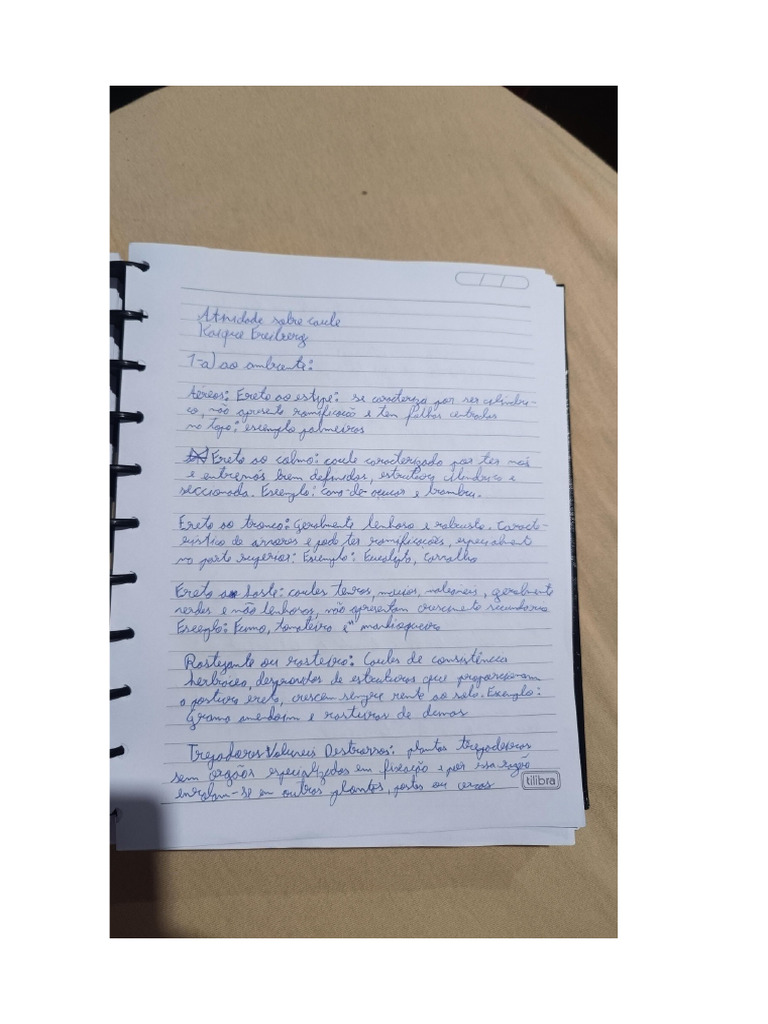 Atividade sobre caule
Kaique Freiberg
1-a) ao ambiente:
Aéreos: Ereto ao estype: se caracteriza por ser cilindri-
co, não apresenta ramificação e tem folhas centradas
no topo; exemplo palmeiras
Ereto ao colmo: caule caracterizado por ter nós
e entrenós bem definidos, estrutura cilindrica e
seccionada. Exemplo: cana-de-açucar e bambu.
Ereto ao tronco: Geralmente lenhoso e robusto. Caracte-
ristico de arvores e pode ter ramificações, especialmente
na parte superior: Exemplo: Eucalipto, carvalho
Ereto a haste: caules tenros, macios, maleaveis, geralmente
verdes e não lenhosos, não apresentam crescimento secundario
Exemplo: Fumo, tomateiro e mandioqueira
Rastejante ou rasteiro: Caules de consistência
herbacea, desprovidos de estruturas que proporcionam
a postura ereta, crescem sempre rente ao solo. Exemplo:
Grama amendoim e rasteiras de
Trepadores Voluveis: plantas trepadeiras
sem orgãos especializados em fixação e por essa razão
enrolam-se em outras plantas, postes ou cercas
tilibra